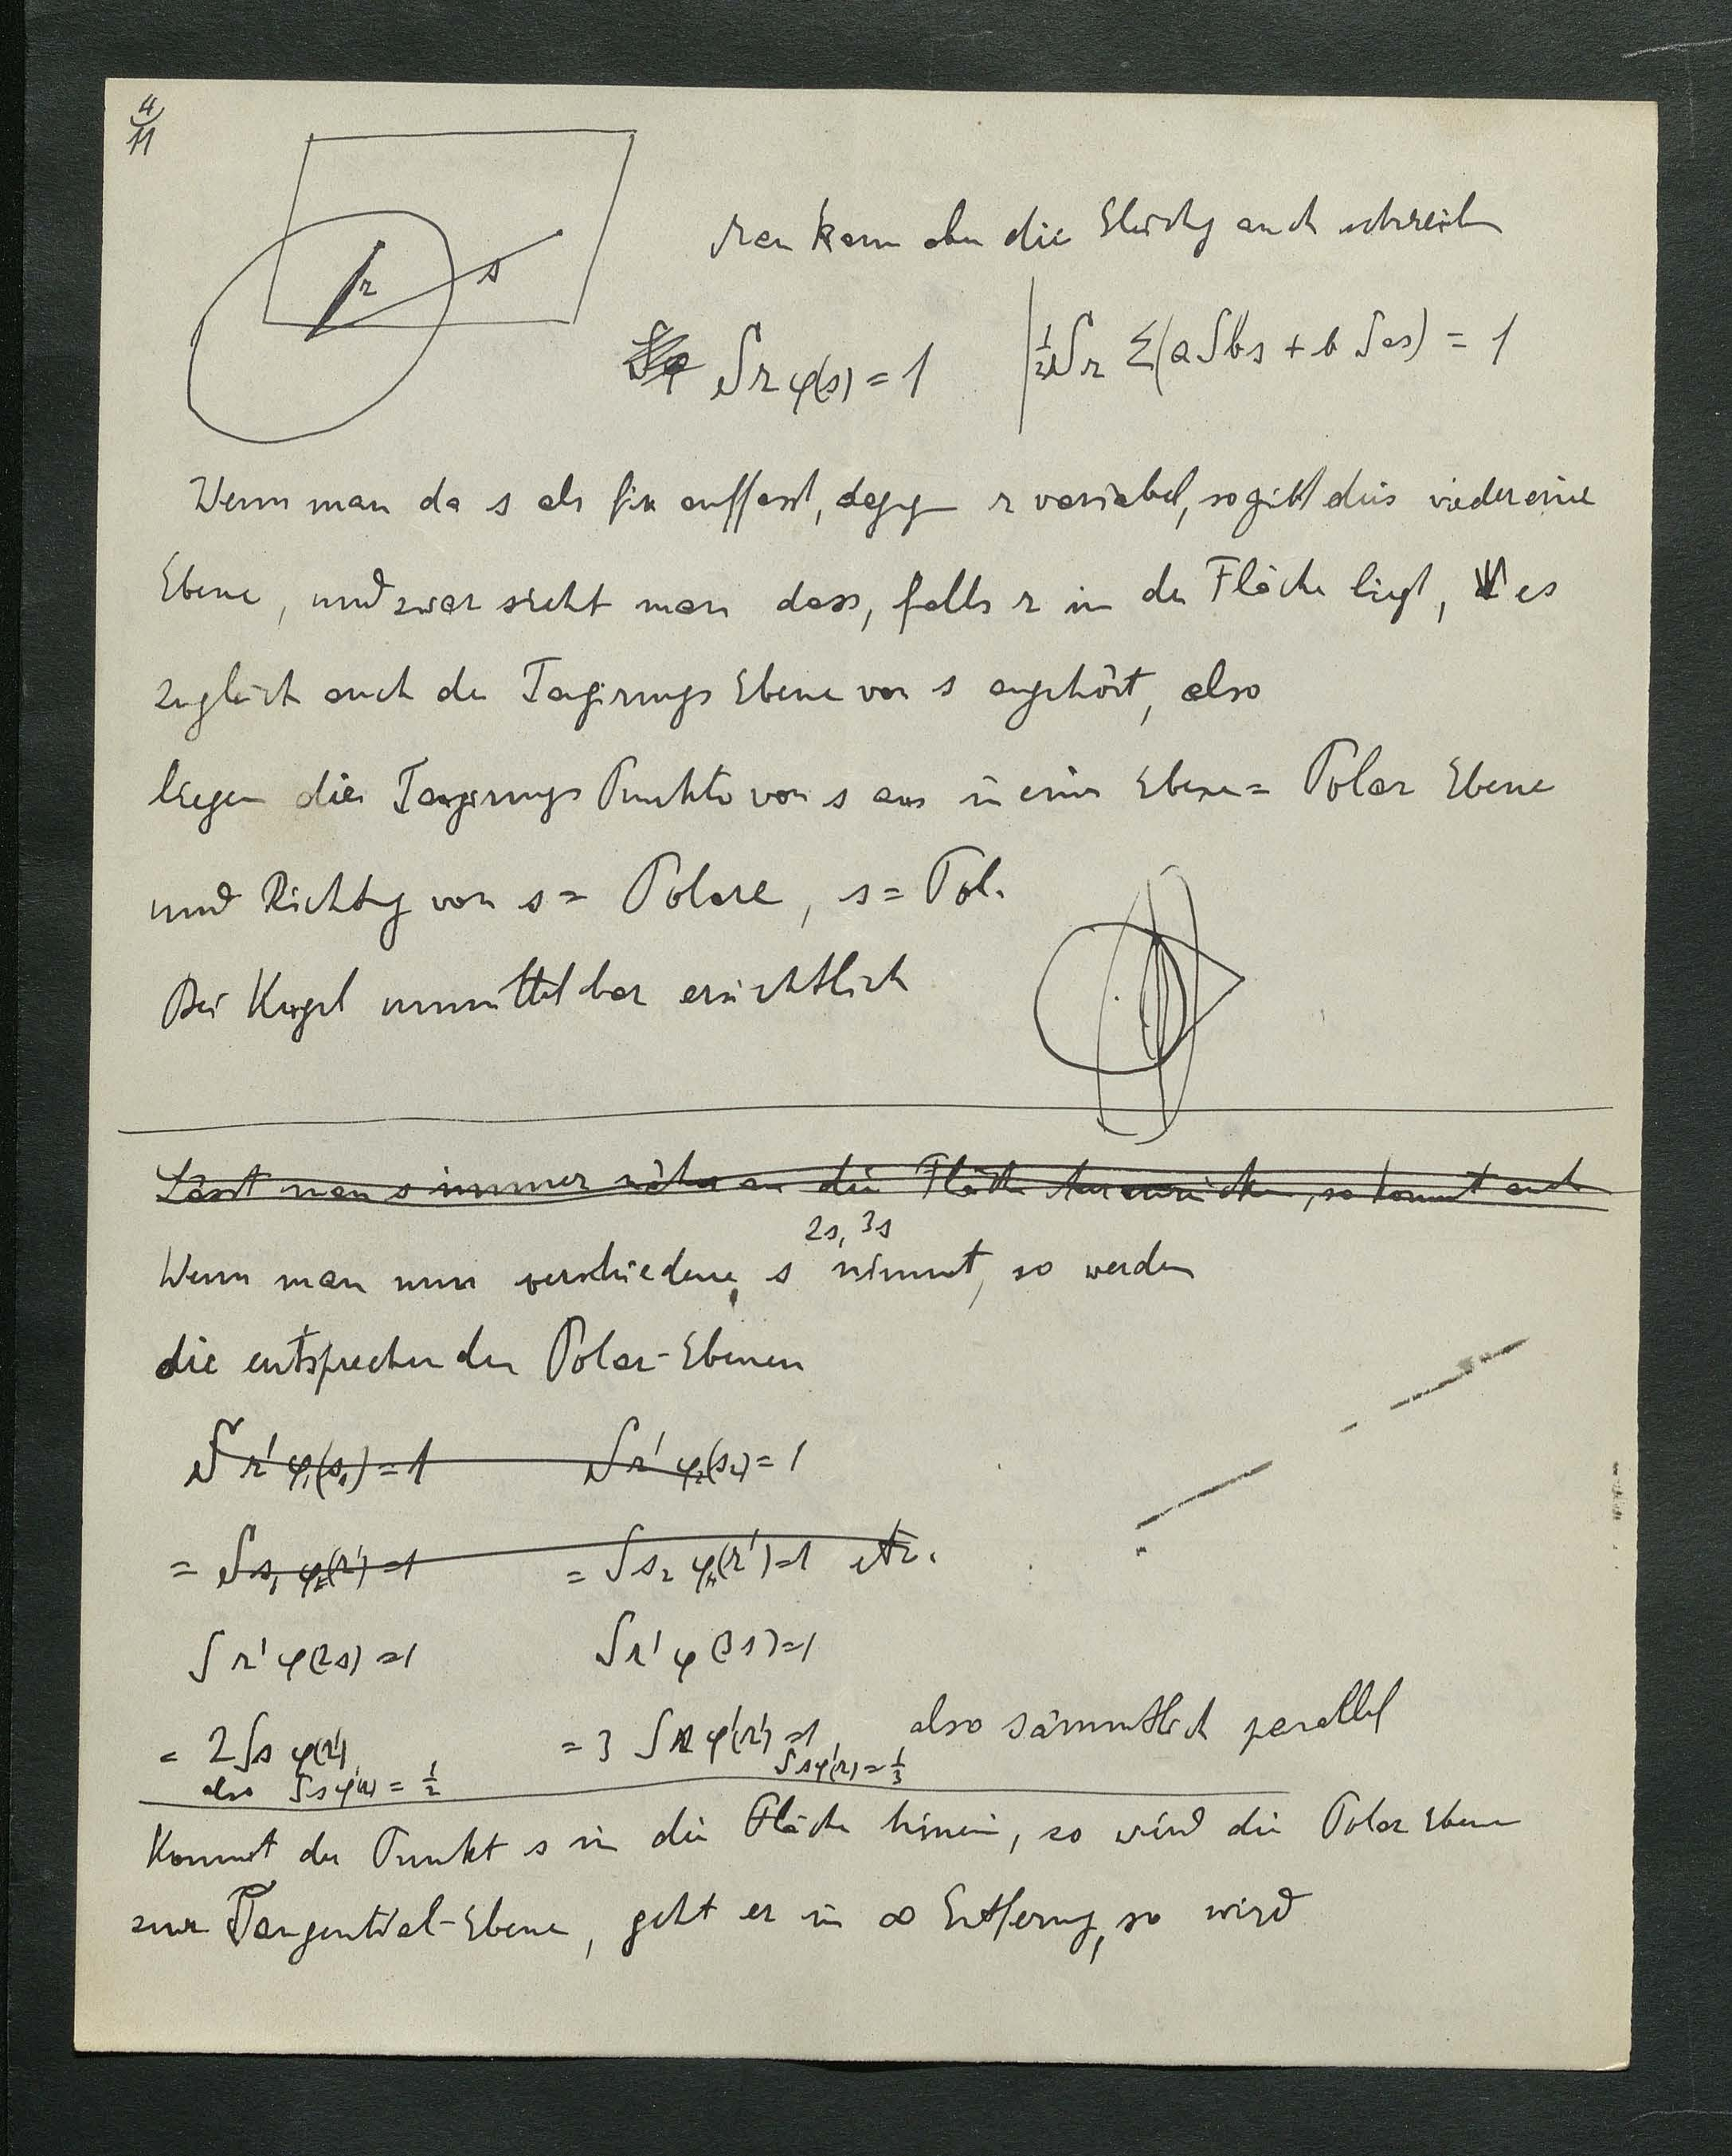 4/11
Man kann aber die Gleichg auch schreiben
S r φ(s) = 1 | ½ S r Σ(a S b s + b S a s) = 1
r s
Wenn man da s als fix auffasst, dagegen r variabel, so gibt dies wieder eine
Ebene, und zwar sieht man dass, falls r in der Fläche liegt, es
zugleich auch der Tangirungs Ebene von s angehört, also
liegen die Tangirungs Punkte von s aus in einer Ebene = Polar Ebene
und Richtg von s = Polare, s = Pol.
Bei Kugel unmittelbar ersichtlich
Lässt man s immer näher an die Fläche heranrücken, so kommt auch
2s, 3s
Wenn man nun verschiedene s nimmt, so werden
die entsprechenden Polar-Ebenen
S r' φ(s₁) = 1 S r' φ(s₂) = 1
= S s₁ φ(r') = 1 = S s₂ φ(r') = 1 etc.
S r' φ(2s) = 1 S r' φ(3s) = 1
= 2 S s φ(r') = 3 S s φ'(r') = 1, also sämmtlich parallel
also S s φ(r) = ½ S s φ(r) = ⅓
Kommt der Punkt s in die Fläche hinein, so wird die Polar Ebene
zur Tangential-Ebene, geht er in ∞ Entferng, so wird